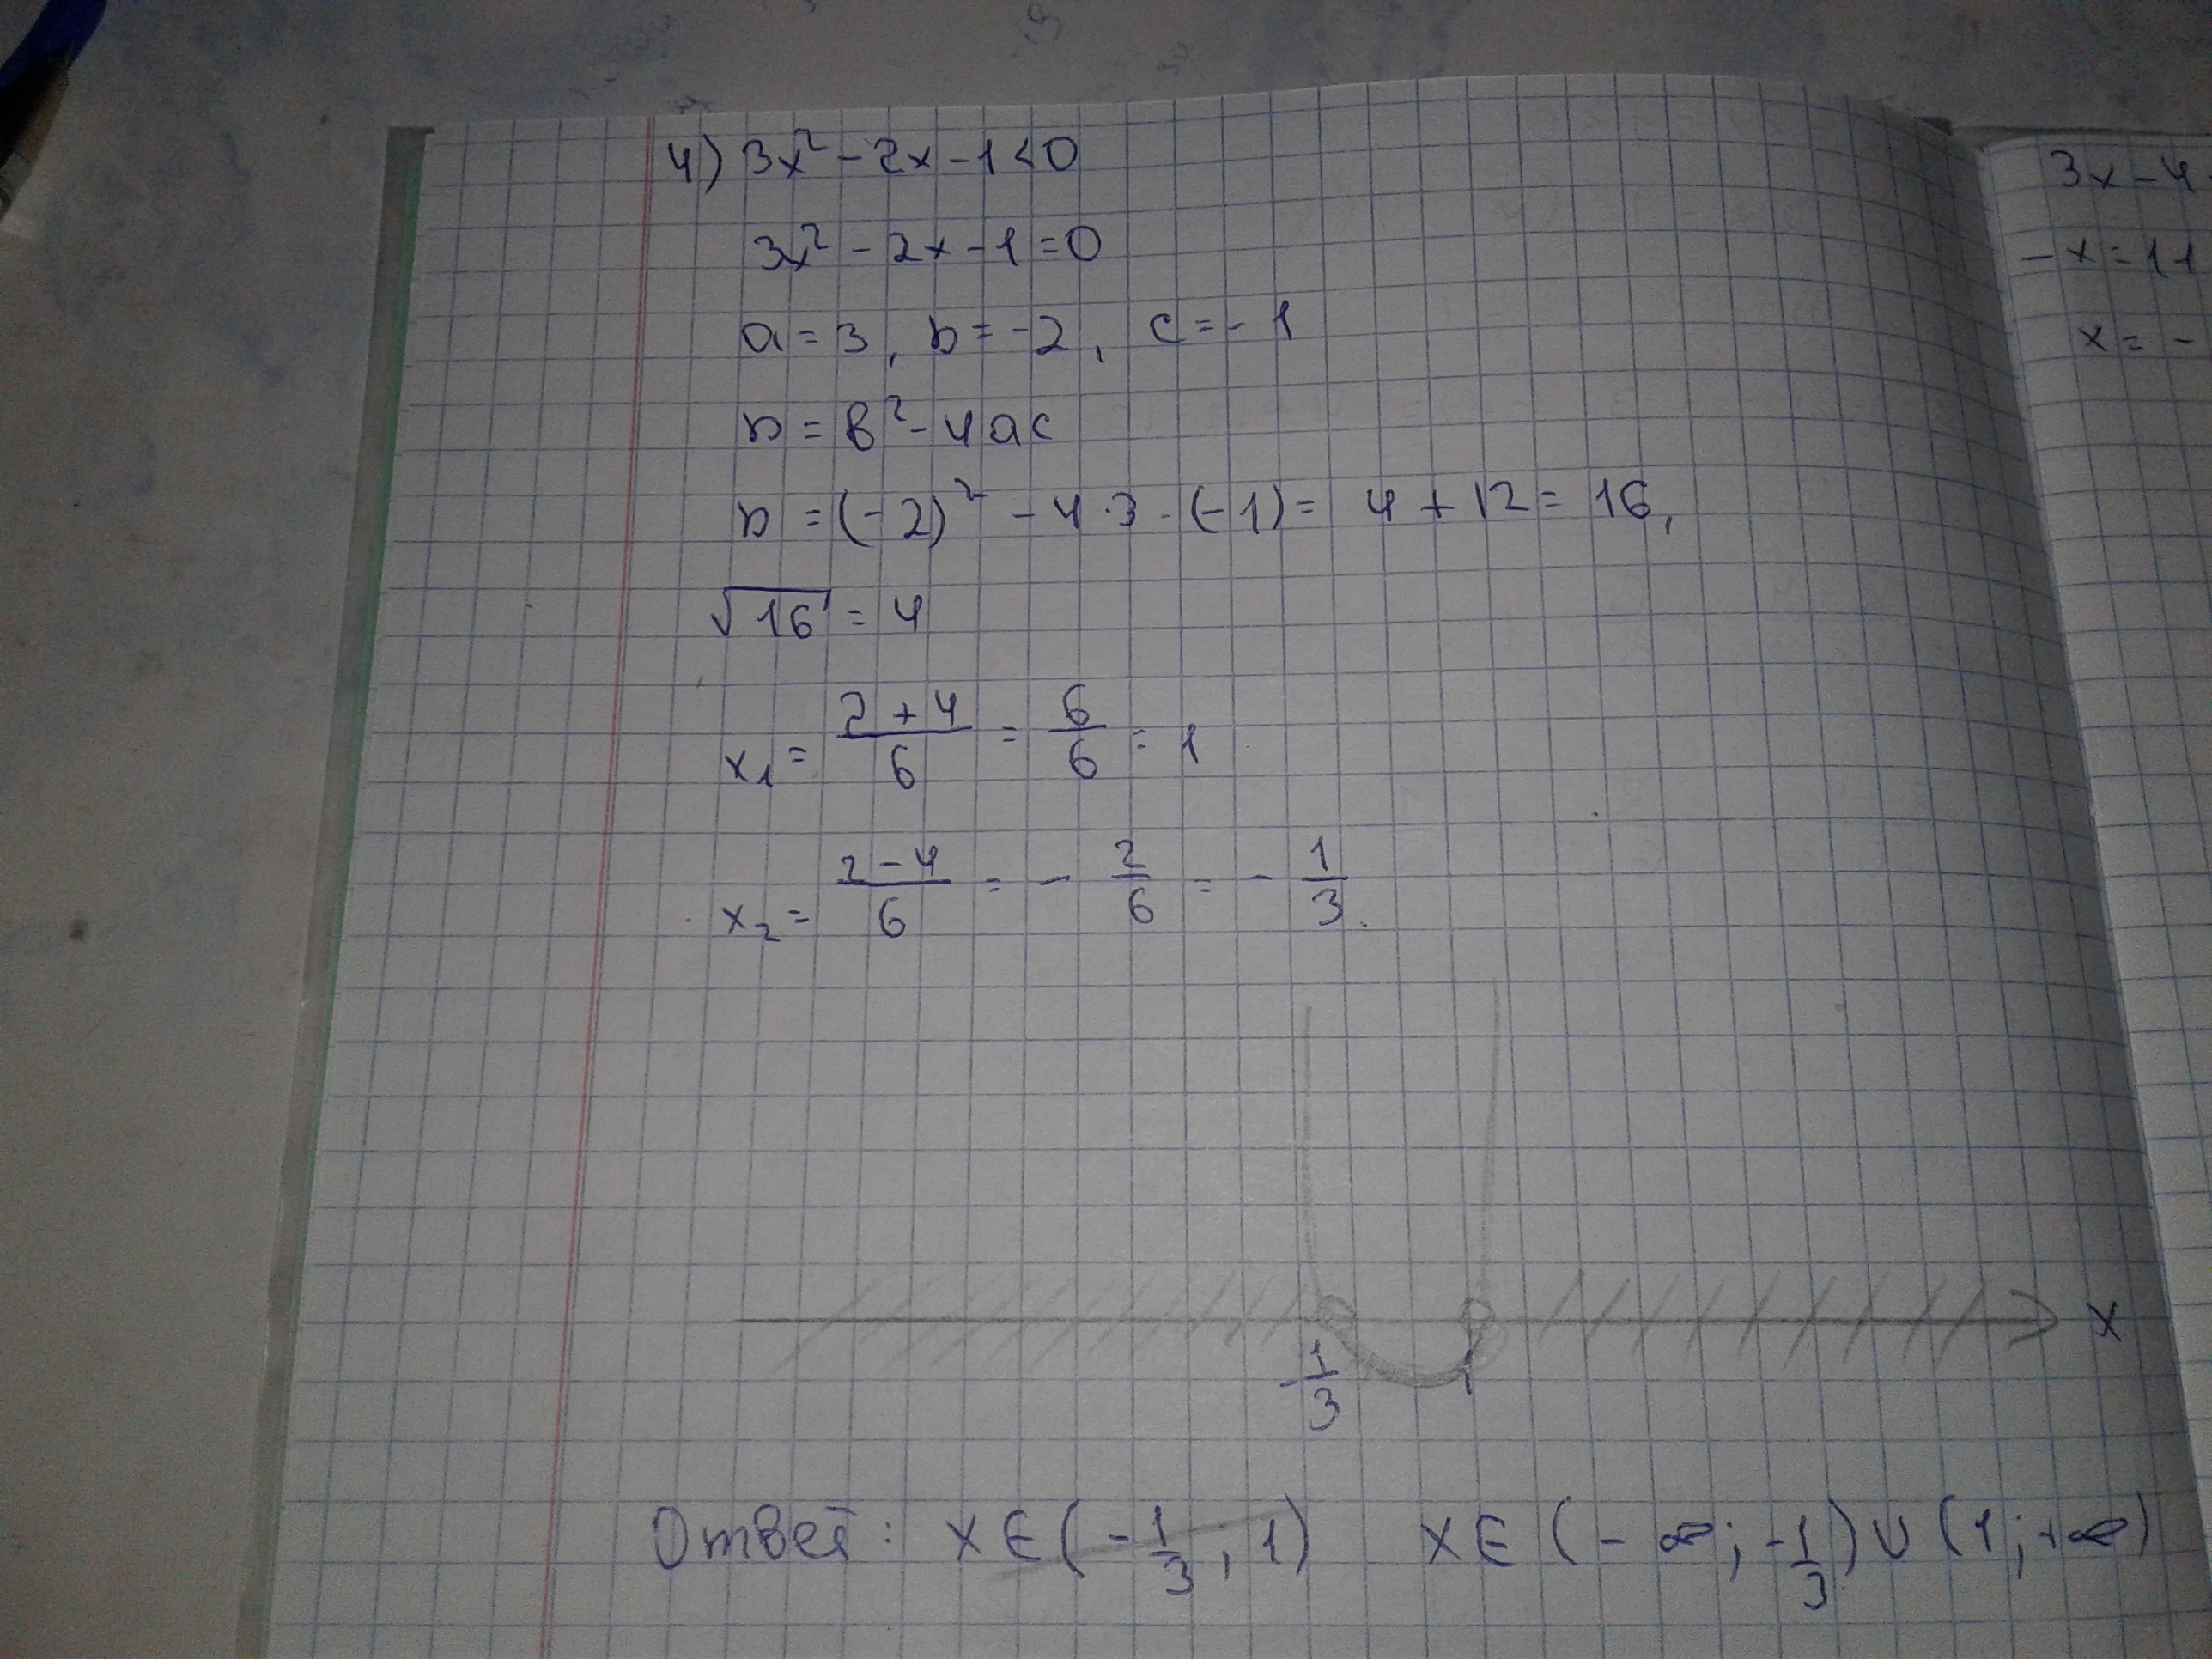 4) 3x² - 2x - 1 < 0
3x² - 2x - 1 = 0
a = 3, b = -2, c = -1
D = b² - 4ac
D = (-2)² - 4·3·(-1) = 4 + 12 = 16,
√16 = 4
x₁ = (2+4)/6 = 6/6 = 1
x₂ = (2-4)/6 = -2/6 = -1/3.
-1/3 1 x
Ответ: x ∈ (-1/3; 1) x ∈ (-∞; -1/3) ∪ (1; +∞)
3x - 4
-x = 11
x = -